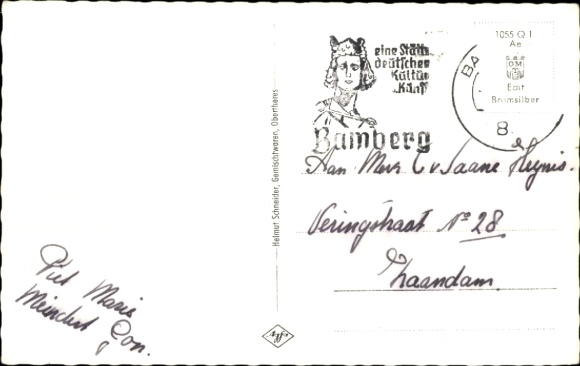 eine Stätte
deutscher
Kultur
u. Kunst
Bamberg
BA
8
1055 Q 1
Ae
Echt
Bromsilber
Helmut Schneider, Gemischtwaren, Obertheres
Aan Mevr. C v. Saane Heynis.
Veringstraat No 28
Zaandam.
Piet Marie
Meindert Gon.
Agfa